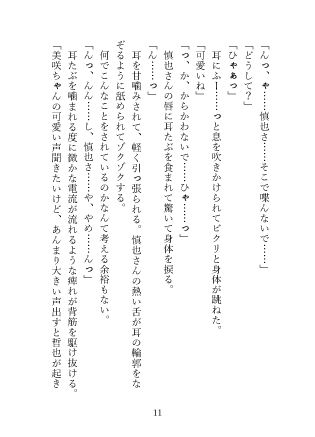 「んっ、ゃ……慎也さ……そこで喋んないで……」
「どうして？」
「ひゃぁっ」
　耳にふー……っと息を吹きかけられてビクリと身体が跳ねた。
「可愛いね」
「っ、か、からかわないで……ひゃ……っ」
　慎也さんの唇に耳たぶを食まれて驚いて身体を捩る。
「ん……っ」
　耳を甘噛みされて、軽く引っ張られる。慎也さんの熱い舌が耳の輪郭をな
ぞるように舐められてゾクゾクする。
　何でこんなことをされているのかなんて考える余裕もない。
「んっ、んん……し、慎也さ……や、やめ……んっ」
　耳たぶを噛まれる度に微かな電流が流れるような痺れが背筋を駆け抜ける。
「美咲ちゃんの可愛い声聞きたいけど、あんまり大きい声出すと哲也が起き
11